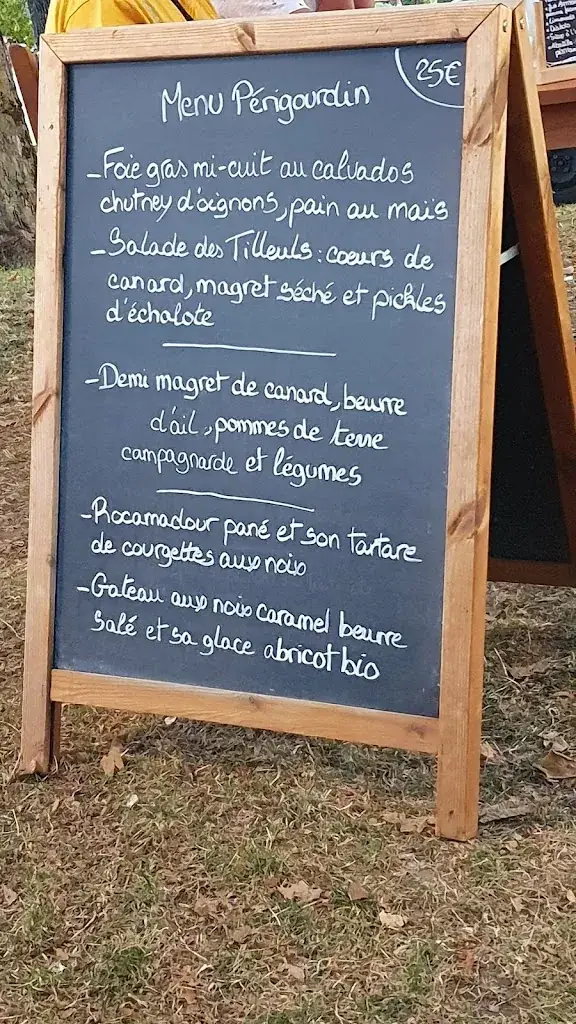 25€
Menu Périgourdin
-Foie gras mi-cuit au calvados
chutney d'oignons, pain au maïs
-Salade des Tilleuls : coeurs de
canard, magret séché et pickles
d'échalote
-Demi magret de canard, beurre
d'ail, pommes de terre
campagnarde et légumes
-Rocamadour pané et son tartare
de courgettes aux noix
-Gateau aux noix caramel beurre
salé et sa glace abricot bio